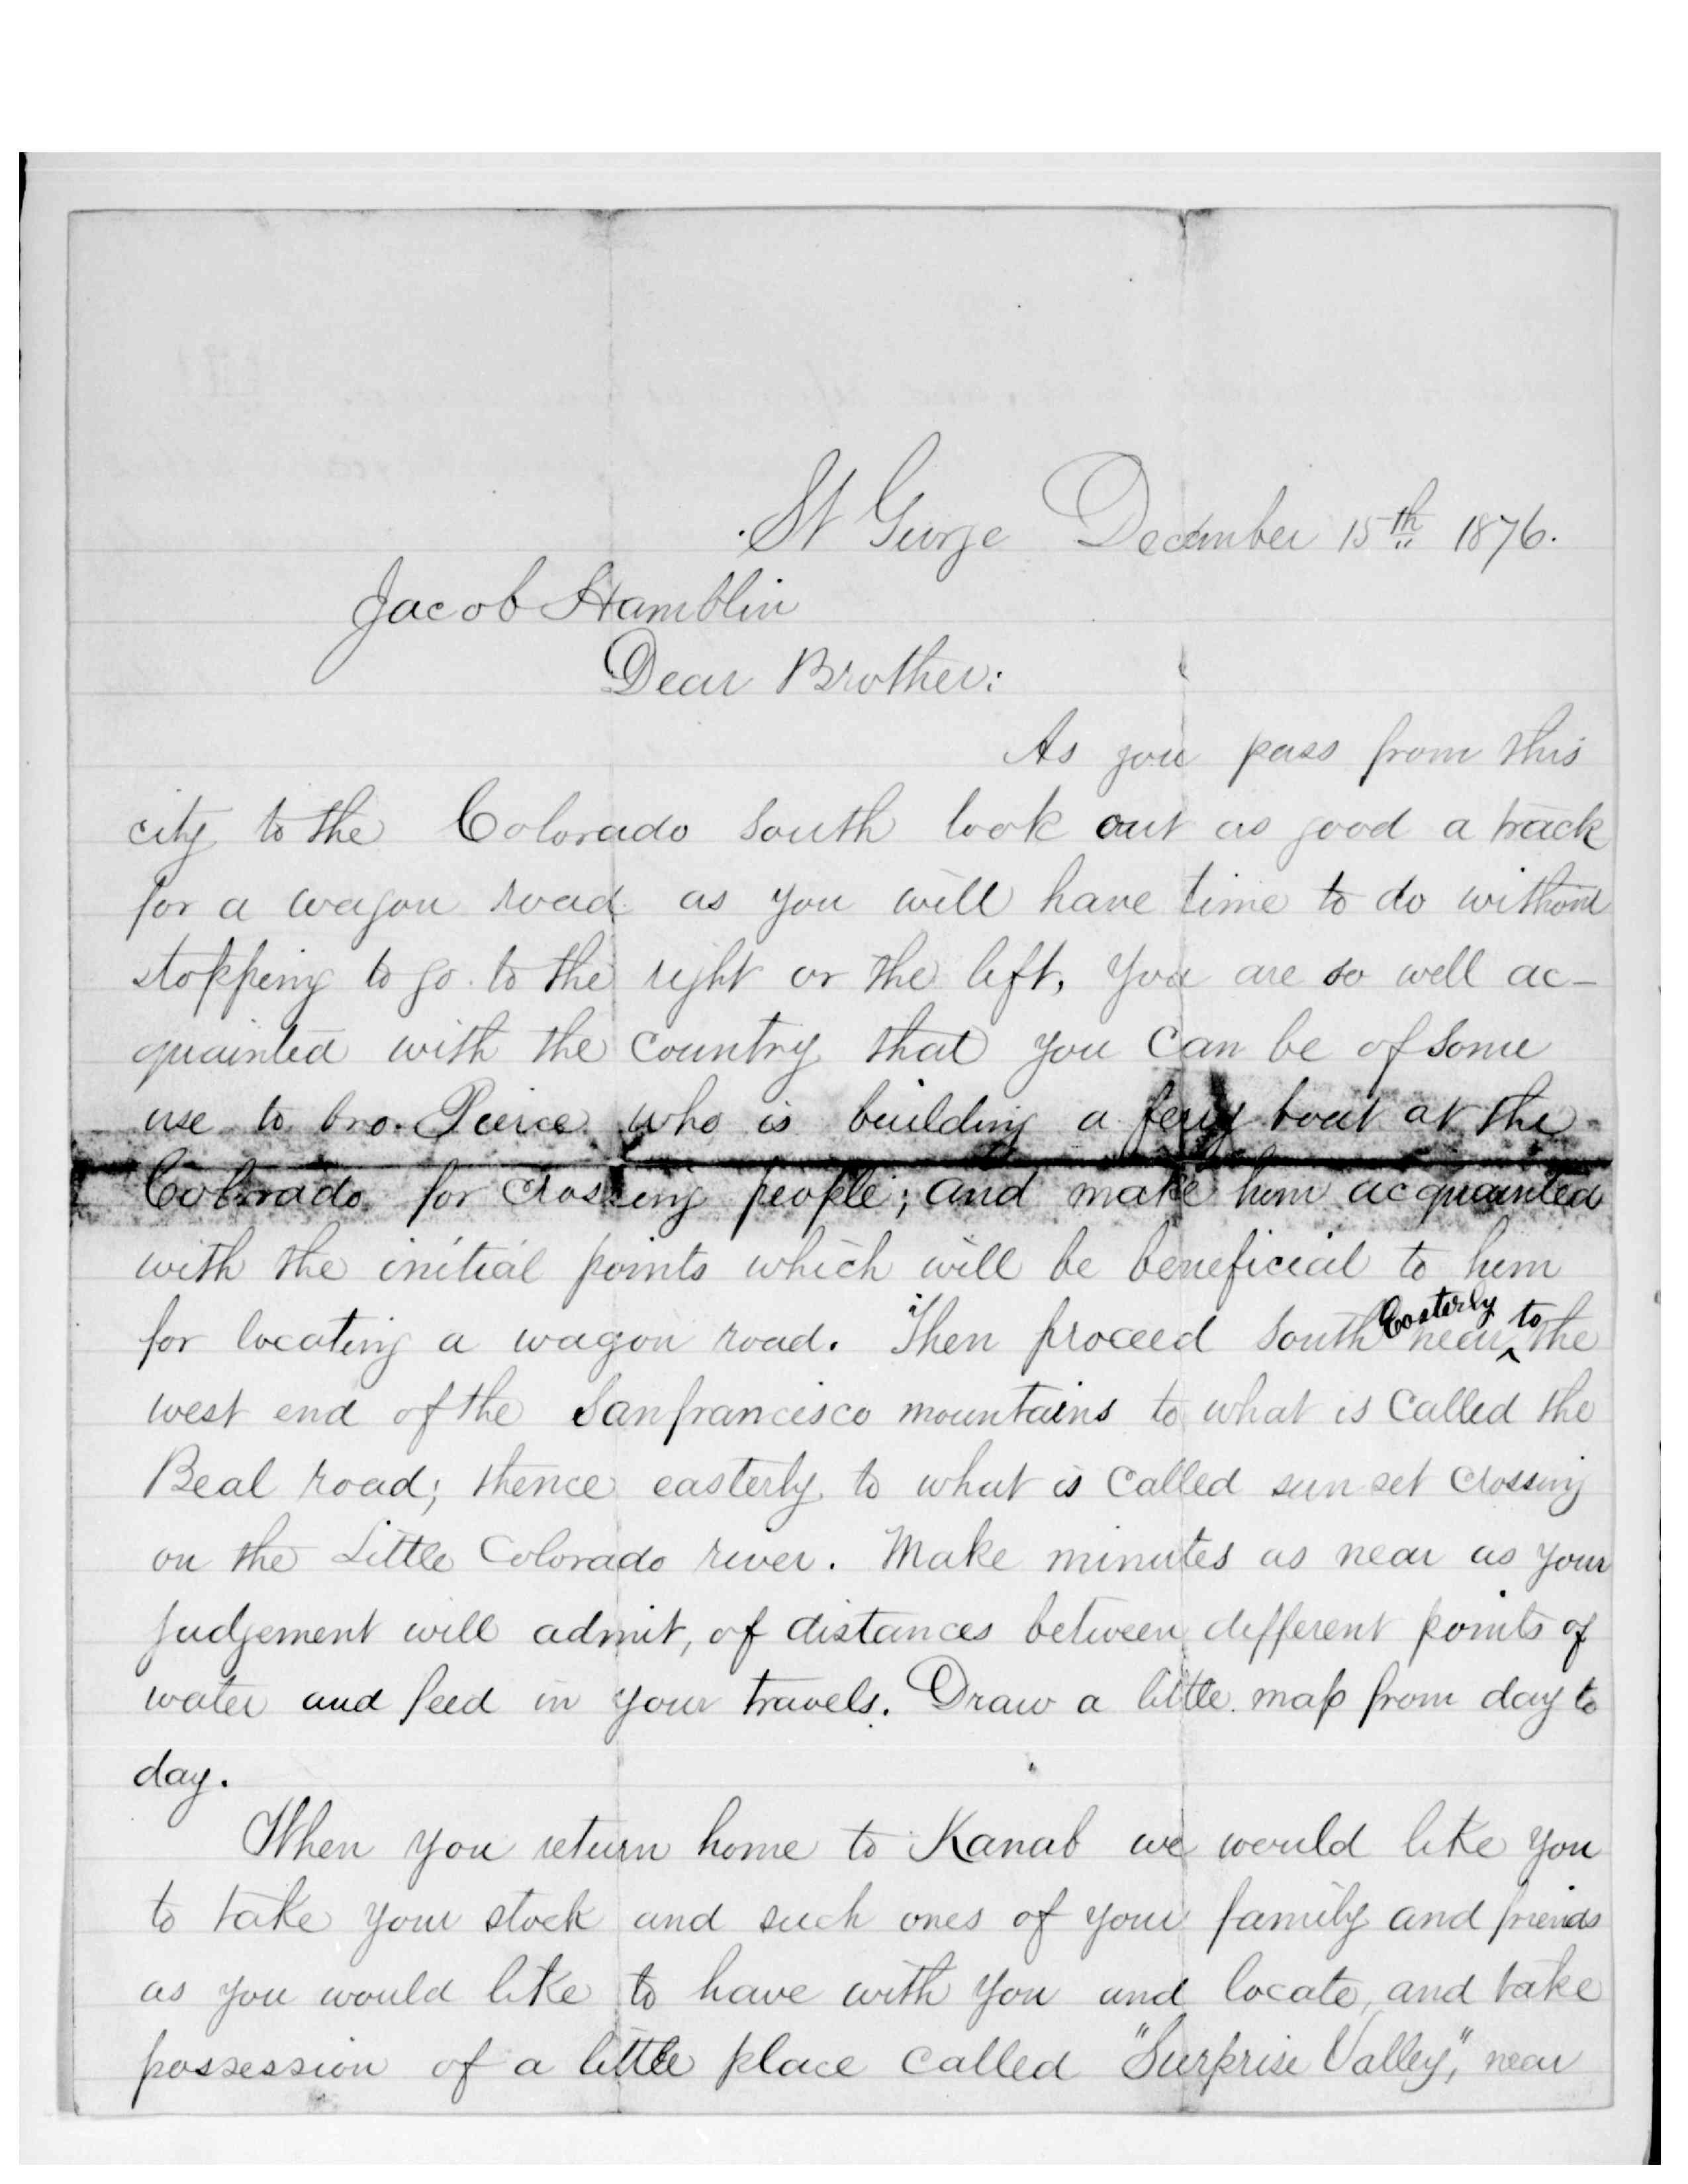 St George December 15th 1876.
Jacob Hamblin
Dear Brother:
As you pass from this
city to the Colorado south look out as good a track
for a wagon road as you will have time to do without
stopping to go to the right or the left, You are so well ac-
quainted with the country that you can be of some
use to bro. Peirce who is building a ferry boat at the
Colorado for crossing people; and make him acquainted
with the initial points which will be beneficial to him
for locating a wagon road. Then proceed south Easterly near to the
west end of the Sanfrancisco mountains to what is called the
Beal road; thence easterly to what is called sun set crossing
on the Little Colorado river. Make minutes as near as your
judgement will admit, of distances between different points of
water and feed in your travels. Draw a little map from day to
day.
When you return home to Kanab we would like you
to take your stock and such ones of your family and friends
as you would like to have with you and locate, and take
possession of a little place called "Surprise Valley", near